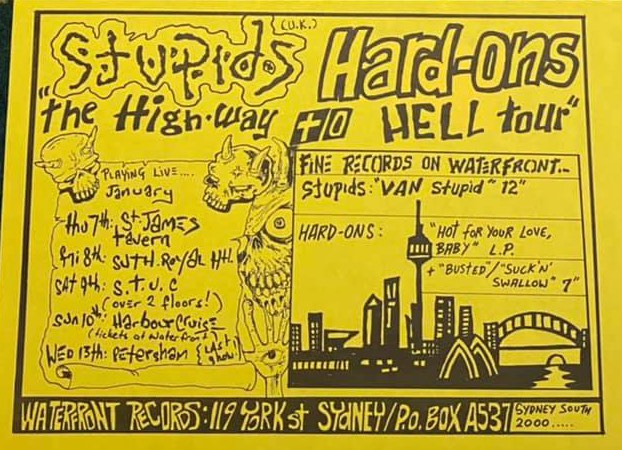 Stupids (U.K.)
Hard-ons
"the High-way to HELL tour"
PLAYING LIVE....
January
thu 7th: St JAMES
tavern
Fri 8th: SUTH. Royal HH.
SAT 9th: S.T.U.C
(over 2 floors!)
SUN 10th: Harbour Cruise
(tickets at Waterfront)
WED 13th: Petersham {LAST show!
FINE RECORDS ON WATERFRONT...
Stupids: "VAN Stupid" 12"
HARD-ONS: "HOT FOR YOUR LOVE,
BABY" L.P.
+ "BUSTED"/"SUCK 'N'
SWALLOW" 7"
WATERFRONT RECORDS: 119 YORK st SYDNEY/P.O. BOX A537 SYDNEY SOUTH
2000.....